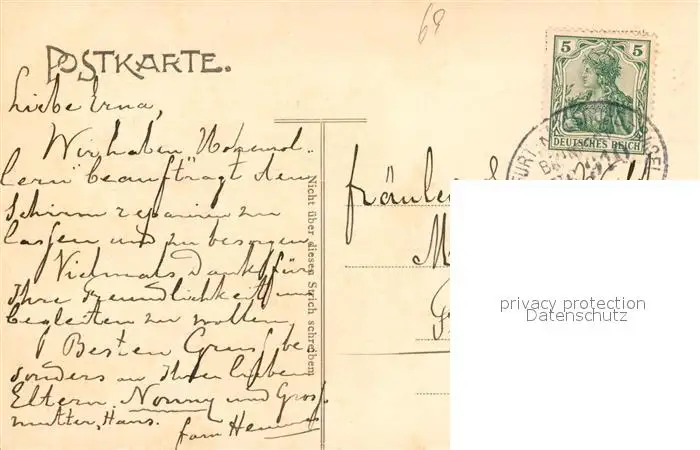 68
POSTKARTE.
5
DEUTSCHES REICH
Liebe Erna,
Wir haben Hohenzol-
lern beauftragt den
Schirm reparieren zu
lassen und zu besorgen
Vielmals Dank für
Ihre Freundlichkeit uns
begleiten zu wollen
Besten Gruss be-
sonders an Ihre lieben
Eltern, Nonny und Gross-
mutter, Hans.
fam
Nicht über diesen Strich schreiben
Fräulein
privacy protection
Datenschutz